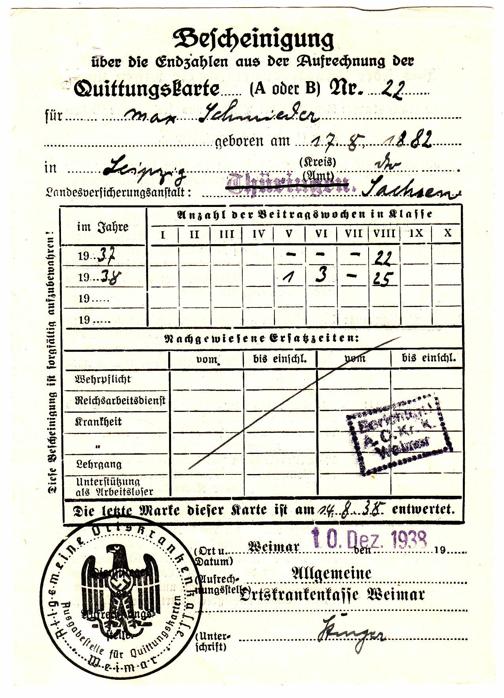 Bescheinigung
über die Endzahlen aus der Aufrechnung der
Quittungskarte (A oder B) Nr. 22
für Max Schmieder
geboren am 17. 8. 1882
in Leipzig (Kreis) (Amt) do
Landesversicherungsanstalt: Thüringen. Sachsen
Diese Bescheinigung ist sorgfältig aufzubewahren!
im Jahre Anzahl der Beitragswochen in Klasse
I II III IV V VI VII VIII IX X
19 37 – – – 22
19 38 1 3 – 25
19
19
Nachgewiesene Ersatzzeiten:
vom bis einschl. vom bis einschl.
Wehrpflicht
Reichsarbeitsdienst
Krankheit
"
Lehrgang
Unterstützung
als Arbeitsloser
Berichtigt
A. O. Kr. K.
Weimar
Die letzte Marke dieser Karte ist am 14. 8. 38. entwertet.
(Ort u. Datum) Weimar den 10. Dez. 1938 19
(Aufrechnungsstelle) Allgemeine
Ortskrankenkasse Weimar
(Unterschrift)
Allgemeine Ortskrankenkasse
Ausgabestelle für Quittungskarten
Weimar